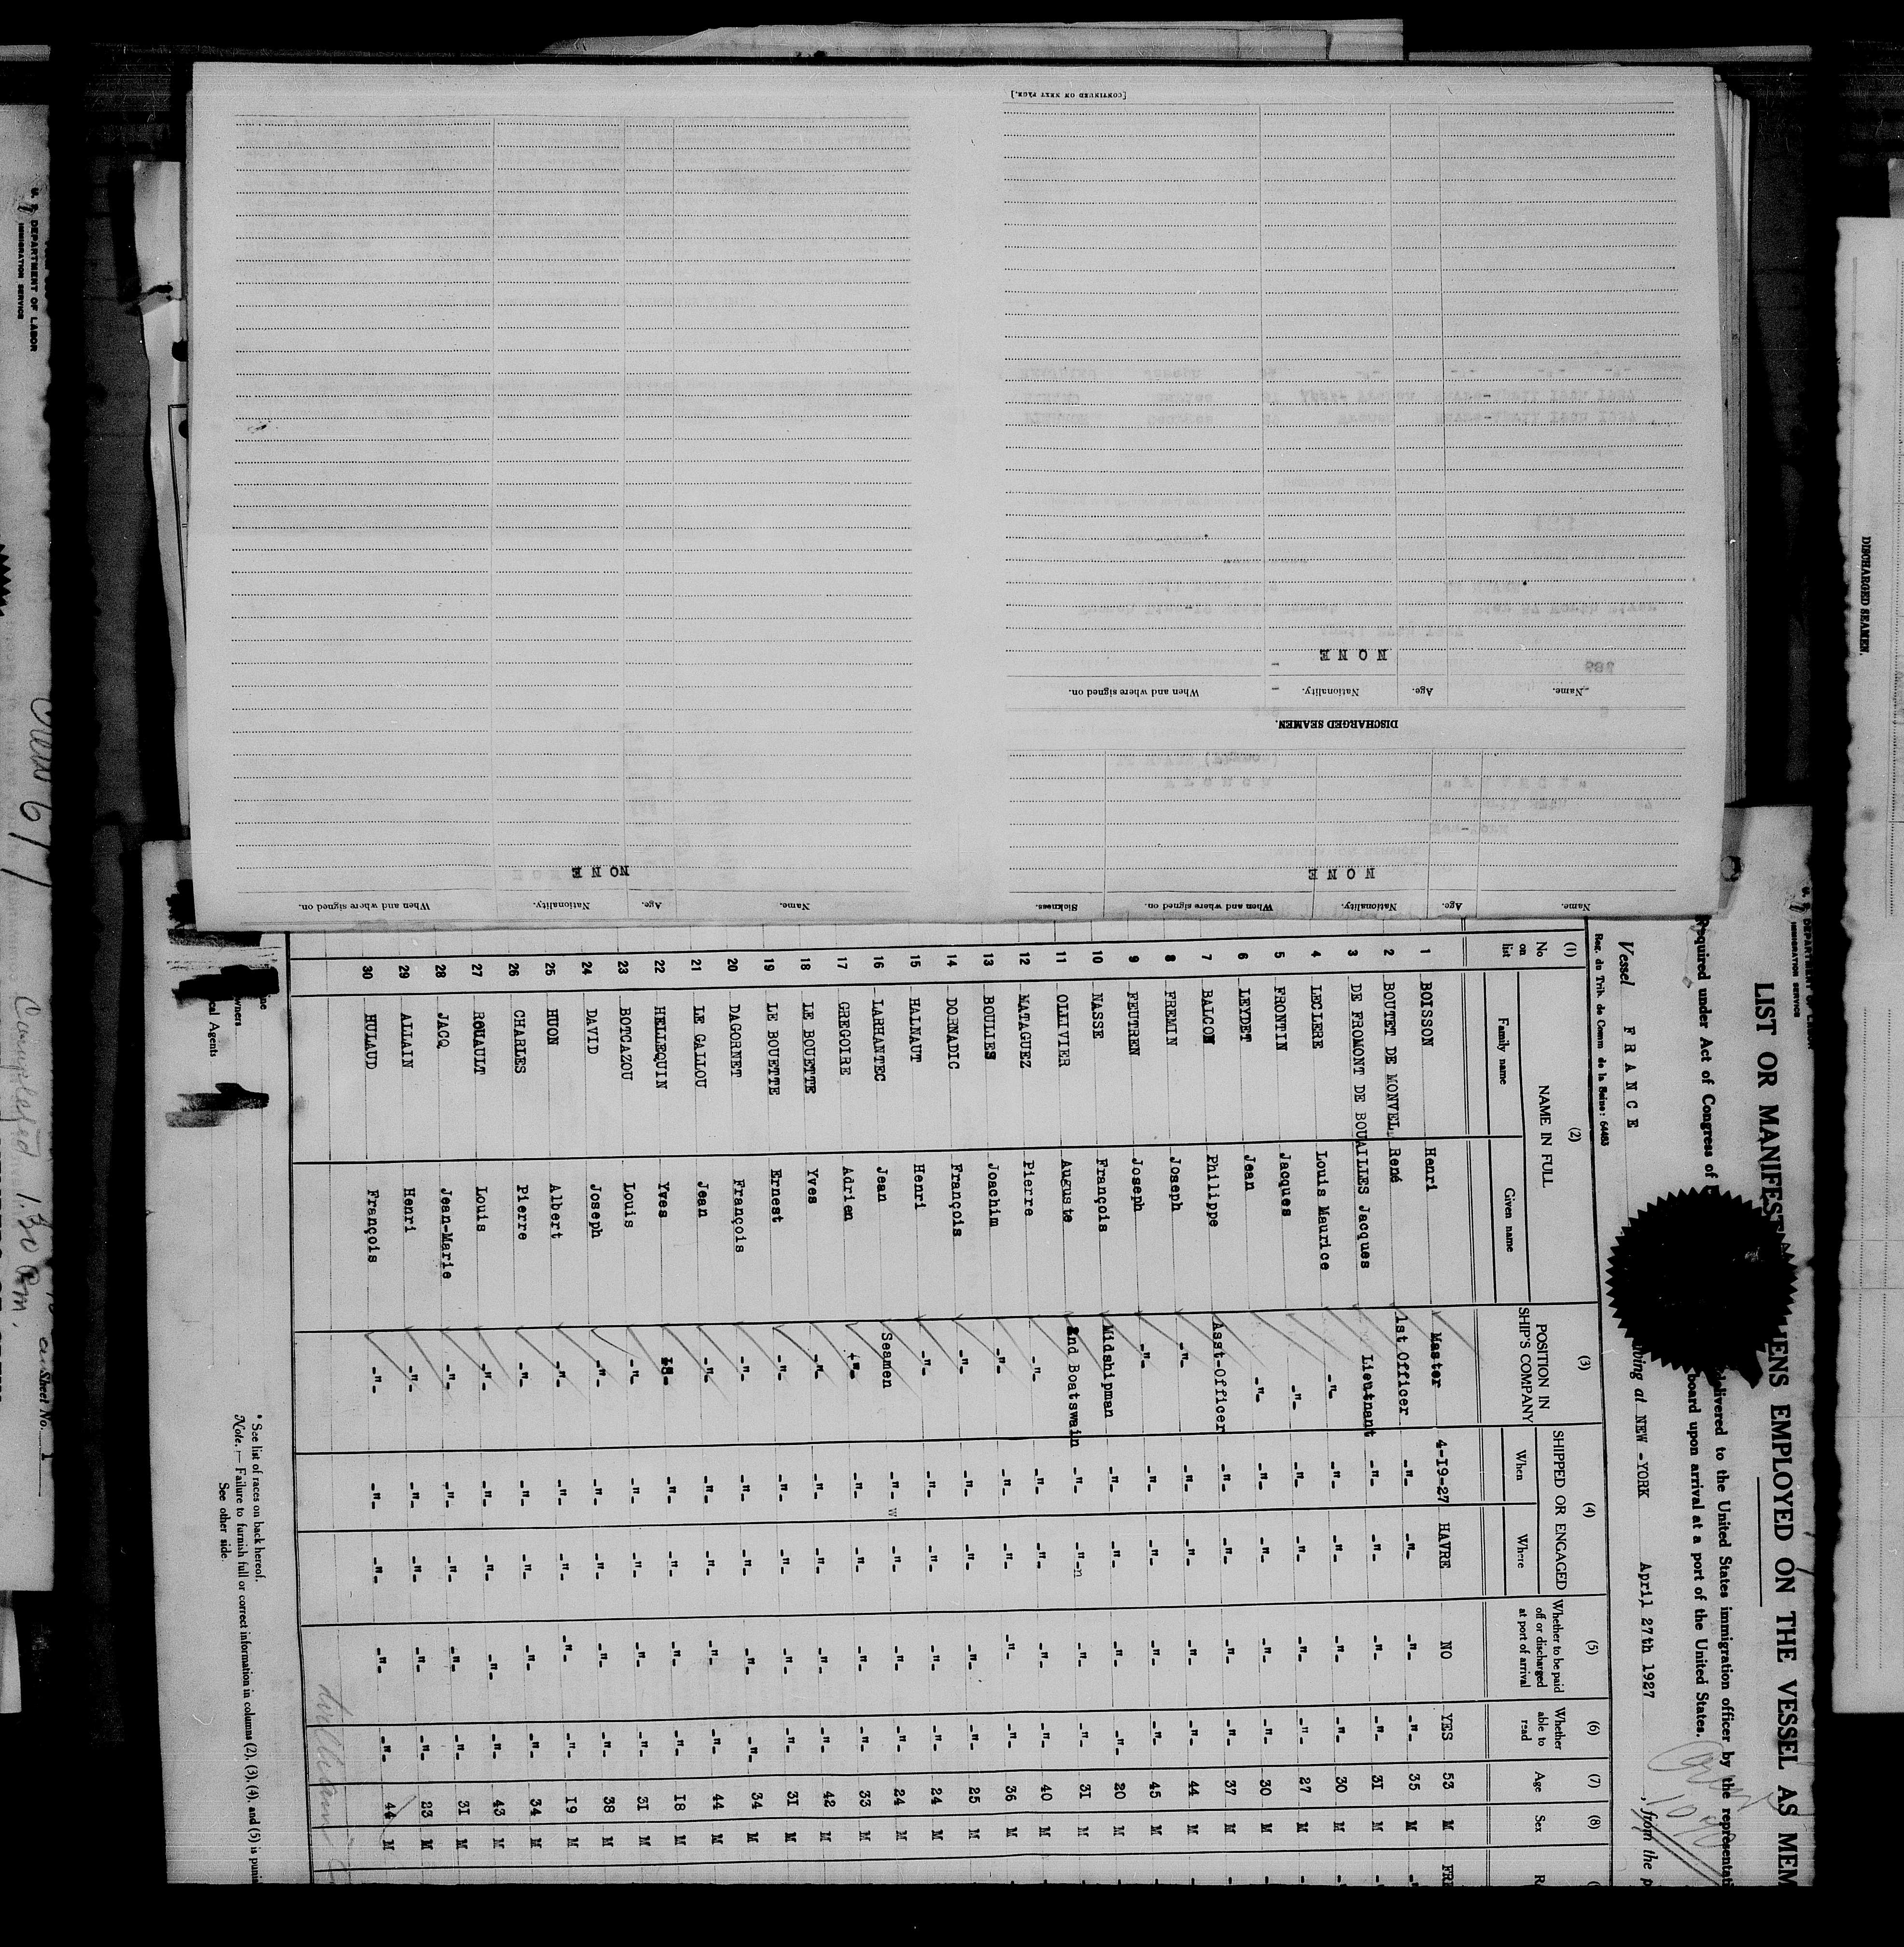 [CONTINUED ON NEXT PAGE.]
NONE
Name. Age. Nationality. When and where signed on.
DISCHARGED SEAMEN.
NONE
Name. Age. Nationality. When and where signed on. Sickness.
NONE
Name. Age. Nationality. When and where signed on.
U. S. DEPARTMENT OF LABOR
IMMIGRATION SERVICE
LIST OR MANIFEST ENS EMPLOYED ON THE VESSEL AS MEM
Required under Act of Congress of delivered to the United States immigration officer by the representati
board upon arrival at a port of the United States.
Vessel FRANCE at NEW -YORK April 27th 1927, from the p
Reg. du Trib. de Comm de la Seine: 64483
(1) (2) (3) (4) (5) (6) (7) (8)
No on list NAME IN FULL POSITION IN SHIP'S COMPANY SHIPPED OR ENGAGED Whether to be paid off or discharged at port of arrival Whether able to read Age Sex
Family name Given name When Where
1 BOISSON Henri Master 4-19-27 HAVRE NO YES 53 M FRE
2 BOUTET DE MONVEL René 1st Officer -"- -"- -"- -"- 35 M
3 DE FROMONT DE BOUAILLES Jacques Lieutnant -"- -"- -"- -"- 31 M
4 LECLERE Louis Maurice -"- -"- -"- -"- -"- 30 M
5 FRONTIN Jacques -"- -"- -"- -"- -"- 27 M
6 LEYDET Jean -"- -"- -"- -"- -"- 30 M
7 BALCON Philippe Asst-Officer -"- -"- -"- -"- 37 M
8 FREMIN Joseph -"- -"- -"- -"- -"- 44 M
9 FEUTREN Joseph -"- -"- -"- -"- -"- 45 M
10 NASSE François Midshipman -"- -"- -"- -"- 20 M
11 OLLIVIER Auguste 2nd Boatswain -"- -"- -"- -"- 31 M
12 MATAGUEZ Pierre -"- -"- -"- -"- -"- 40 M
13 BOULIES Joachim -"- -"- -"- -"- -"- 36 M
14 DORNADIC François -"- -"- -"- -"- -"- 25 M
15 HALNAUT Henri -"- -"- -"- -"- -"- 24 M
16 LARHANTEC Jean Seamen -"- -"- -"- -"- 24 M
17 GREGOIRE Adrien -"- -"- -"- -"- -"- 33 M
18 LE BOUETTE Yves -"- -"- -"- -"- -"- 42 M
19 LE BOUETTE Ernest -"- -"- -"- -"- -"- 31 M
20 DAGORNET François -"- -"- -"- -"- -"- 34 M
21 LE GALLOU Jean -"- -"- -"- -"- -"- 44 M
22 HELLEQUIN Yves -"- -"- -"- -"- 18 M
23 BOTCAZOU Louis -"- -"- -"- -"- -"- 31 M
24 DAVID Joseph -"- -"- -"- -"- -"- 38 M
25 HUON Albert -"- -"- -"- -"- -"- 19 M
26 CHARLES Pierre -"- -"- -"- -"- -"- 34 M
27 ROUAULT Louis -"- -"- -"- -"- -"- 43 M
28 JACQ Jean-Marie -"- -"- -"- -"- -"- 31 M
29 ALLAIN Henri -"- -"- -"- -"- -"- 23 M
30 HULAUD François -"- -"- -"- -"- -"- 44 M
ine
wners
cal Agents
* See list of races on back hereof.
Note.— Failure to furnish full or correct information in columns (2), (3), (4), and (5) is puni
See other side.
U. S. DEPARTMENT OF LABOR
IMMIGRATION SERVICE
Crew 611
Completed 1.30 Pm.
Sheet No. 1
DISCHARGED SEAMEN.